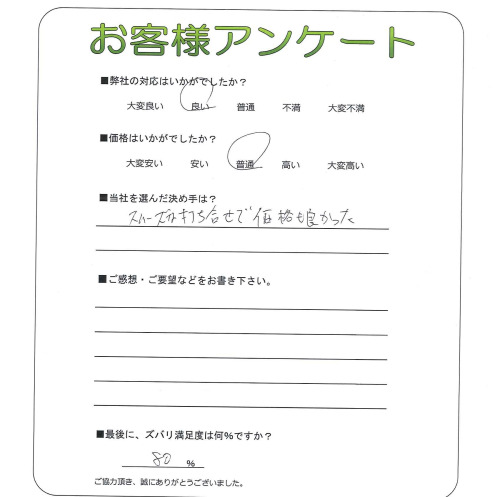 お客様アンケート
■弊社の対応はいかがでしたか？
大変良い 良い 普通 不満 大変不満
■価格はいかがでしたか？
大変安い 安い 普通 高い 大変高い
■当社を選んだ決め手は？
スムーズな打ち合せで価格も良かった
■ご感想・ご要望などをお書き下さい。
■最後に、ズバリ満足度は何％ですか？
80 ％
ご協力頂き、誠にありがとうございました。